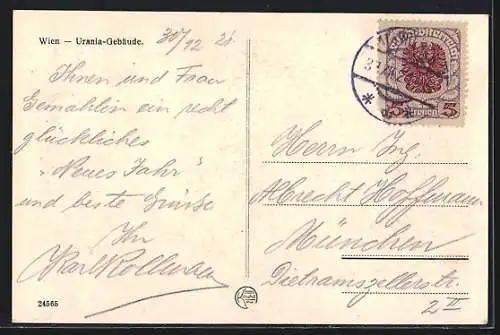 Wien — Urania-Gebäude.
30/12 21
Ihnen und Frau
Gemahlin ein recht
glückliches
„Neues Jahr"
und beste Grüße
Ihr
Karl
24565
5 5
Kronen
Herrn Ing.
Albrecht Hoffmann
München
Dietramszellerstr.
2 II